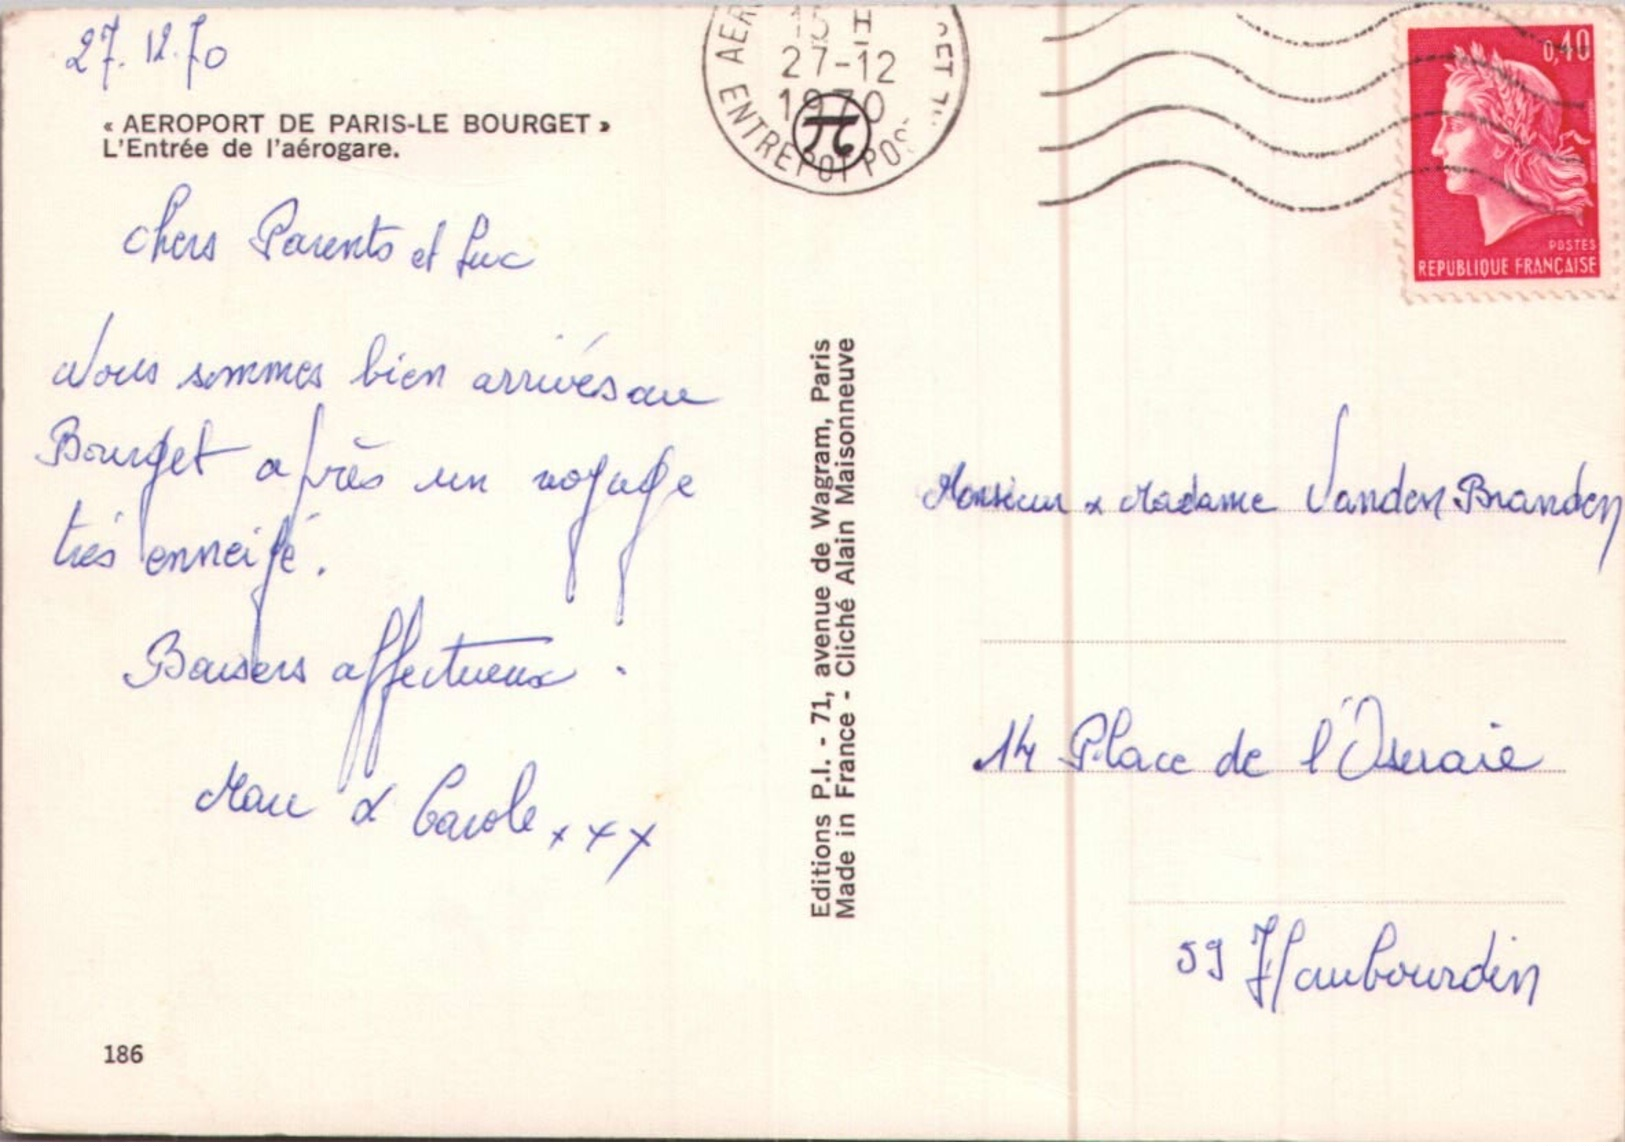 27.12.70
« AEROPORT DE PARIS-LE BOURGET »
L'Entrée de l'aérogare.
Chers Parents et Luc
Nous sommes bien arrivés au
Bourget après un voyage
très enneigé.
Baisers affectueux.
Marc & Carole xxx
186
Editions P.I. - 71, avenue de Wagram, Paris
Made in France - Cliché Alain Maisonneuve
27-12
1970
ENTREPOT POST
0,40
POSTES
REPUBLIQUE FRANÇAISE
Monsieur & Madame Vanden Branden
14 Place de l'Oseraie
59 Haubourdin